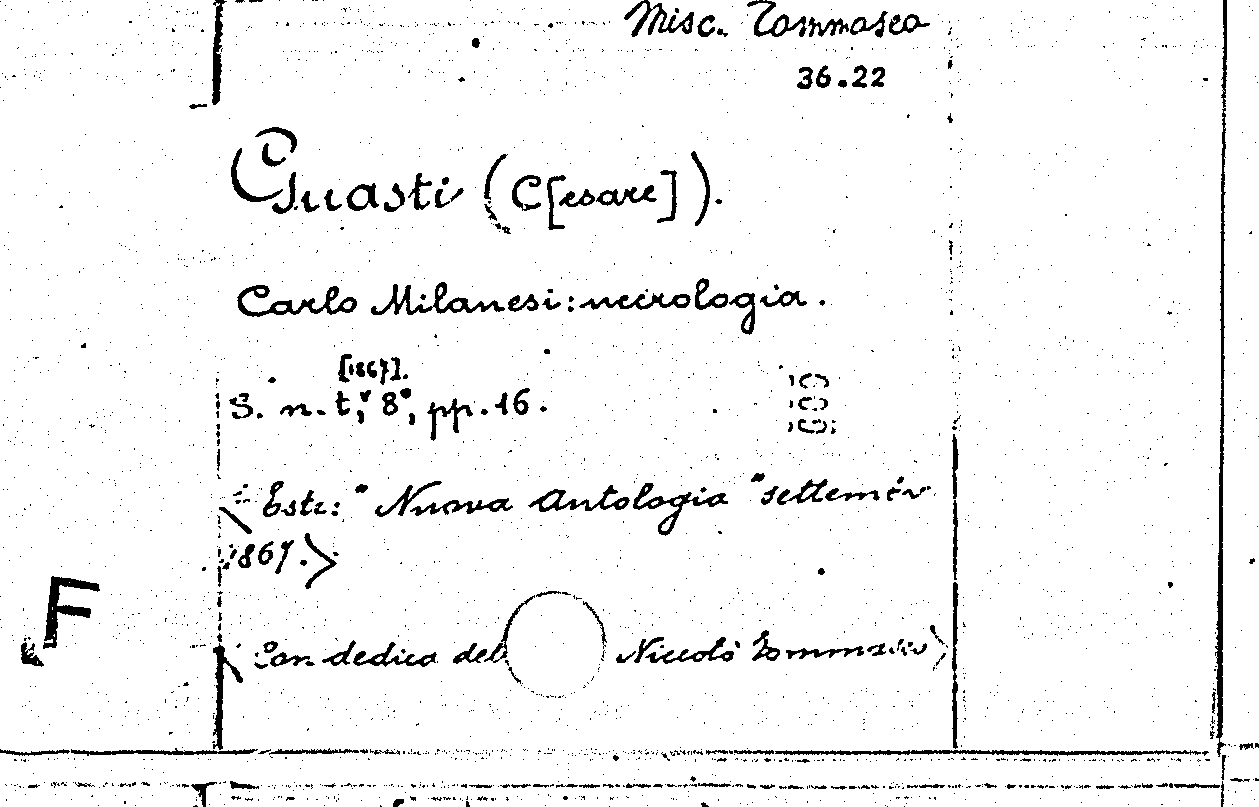 Misc. Tommaseo
36.22
Guasti (C[esare]).
Carlo Milanesi: necrologia.
[1867].
S. n. t., 8°, pp. 16.
Estr: "Nuova Antologia" settembre
1867.>
F
Con dedica del Niccolò Tommaseo>